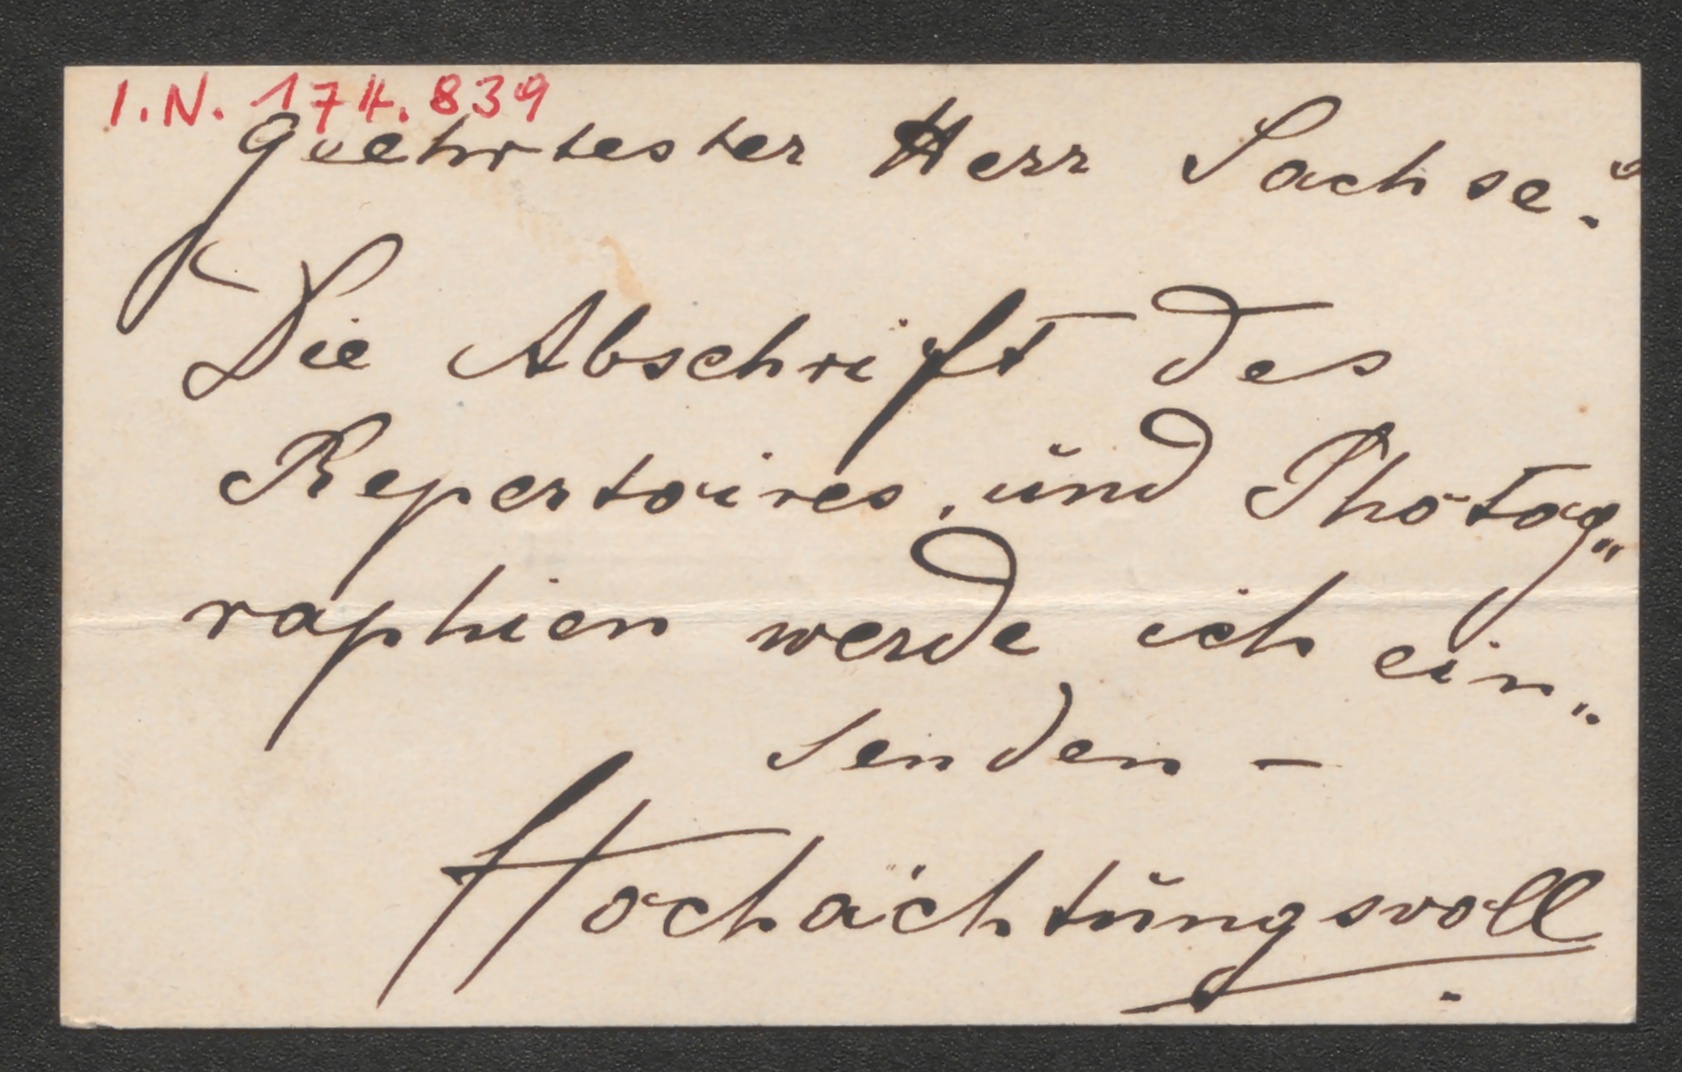 I.N. 174.839
geehrtester Herr Sachse.
Die Abschrift des
Repertoires, und Photog„
raphien werde ich ein„
senden –
Hochächtungsvoll